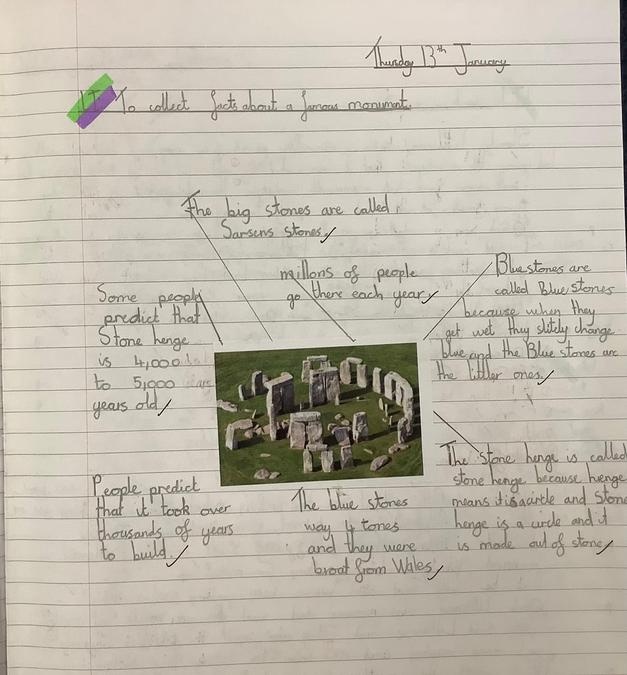 Thursday 13th January
LI To collect facts about a famous monument.
The big stones are called
Sarsens stones.
millons of people
go there each year
Some people
predict that
Stone henge
is 4,000
to 5,000
years old
Blue stones are
called Blue stones
because when they
get wet they slitly change
blue and the Blue stones are
the littler ones.
People predict
that it took over
thousands of years
to build.
The blue stones
way 4 tones
and they were
broat from Wales
The stone henge is called
stone henge because henge
means it is a circle and Stone
henge is a circle and it
is made out of stone